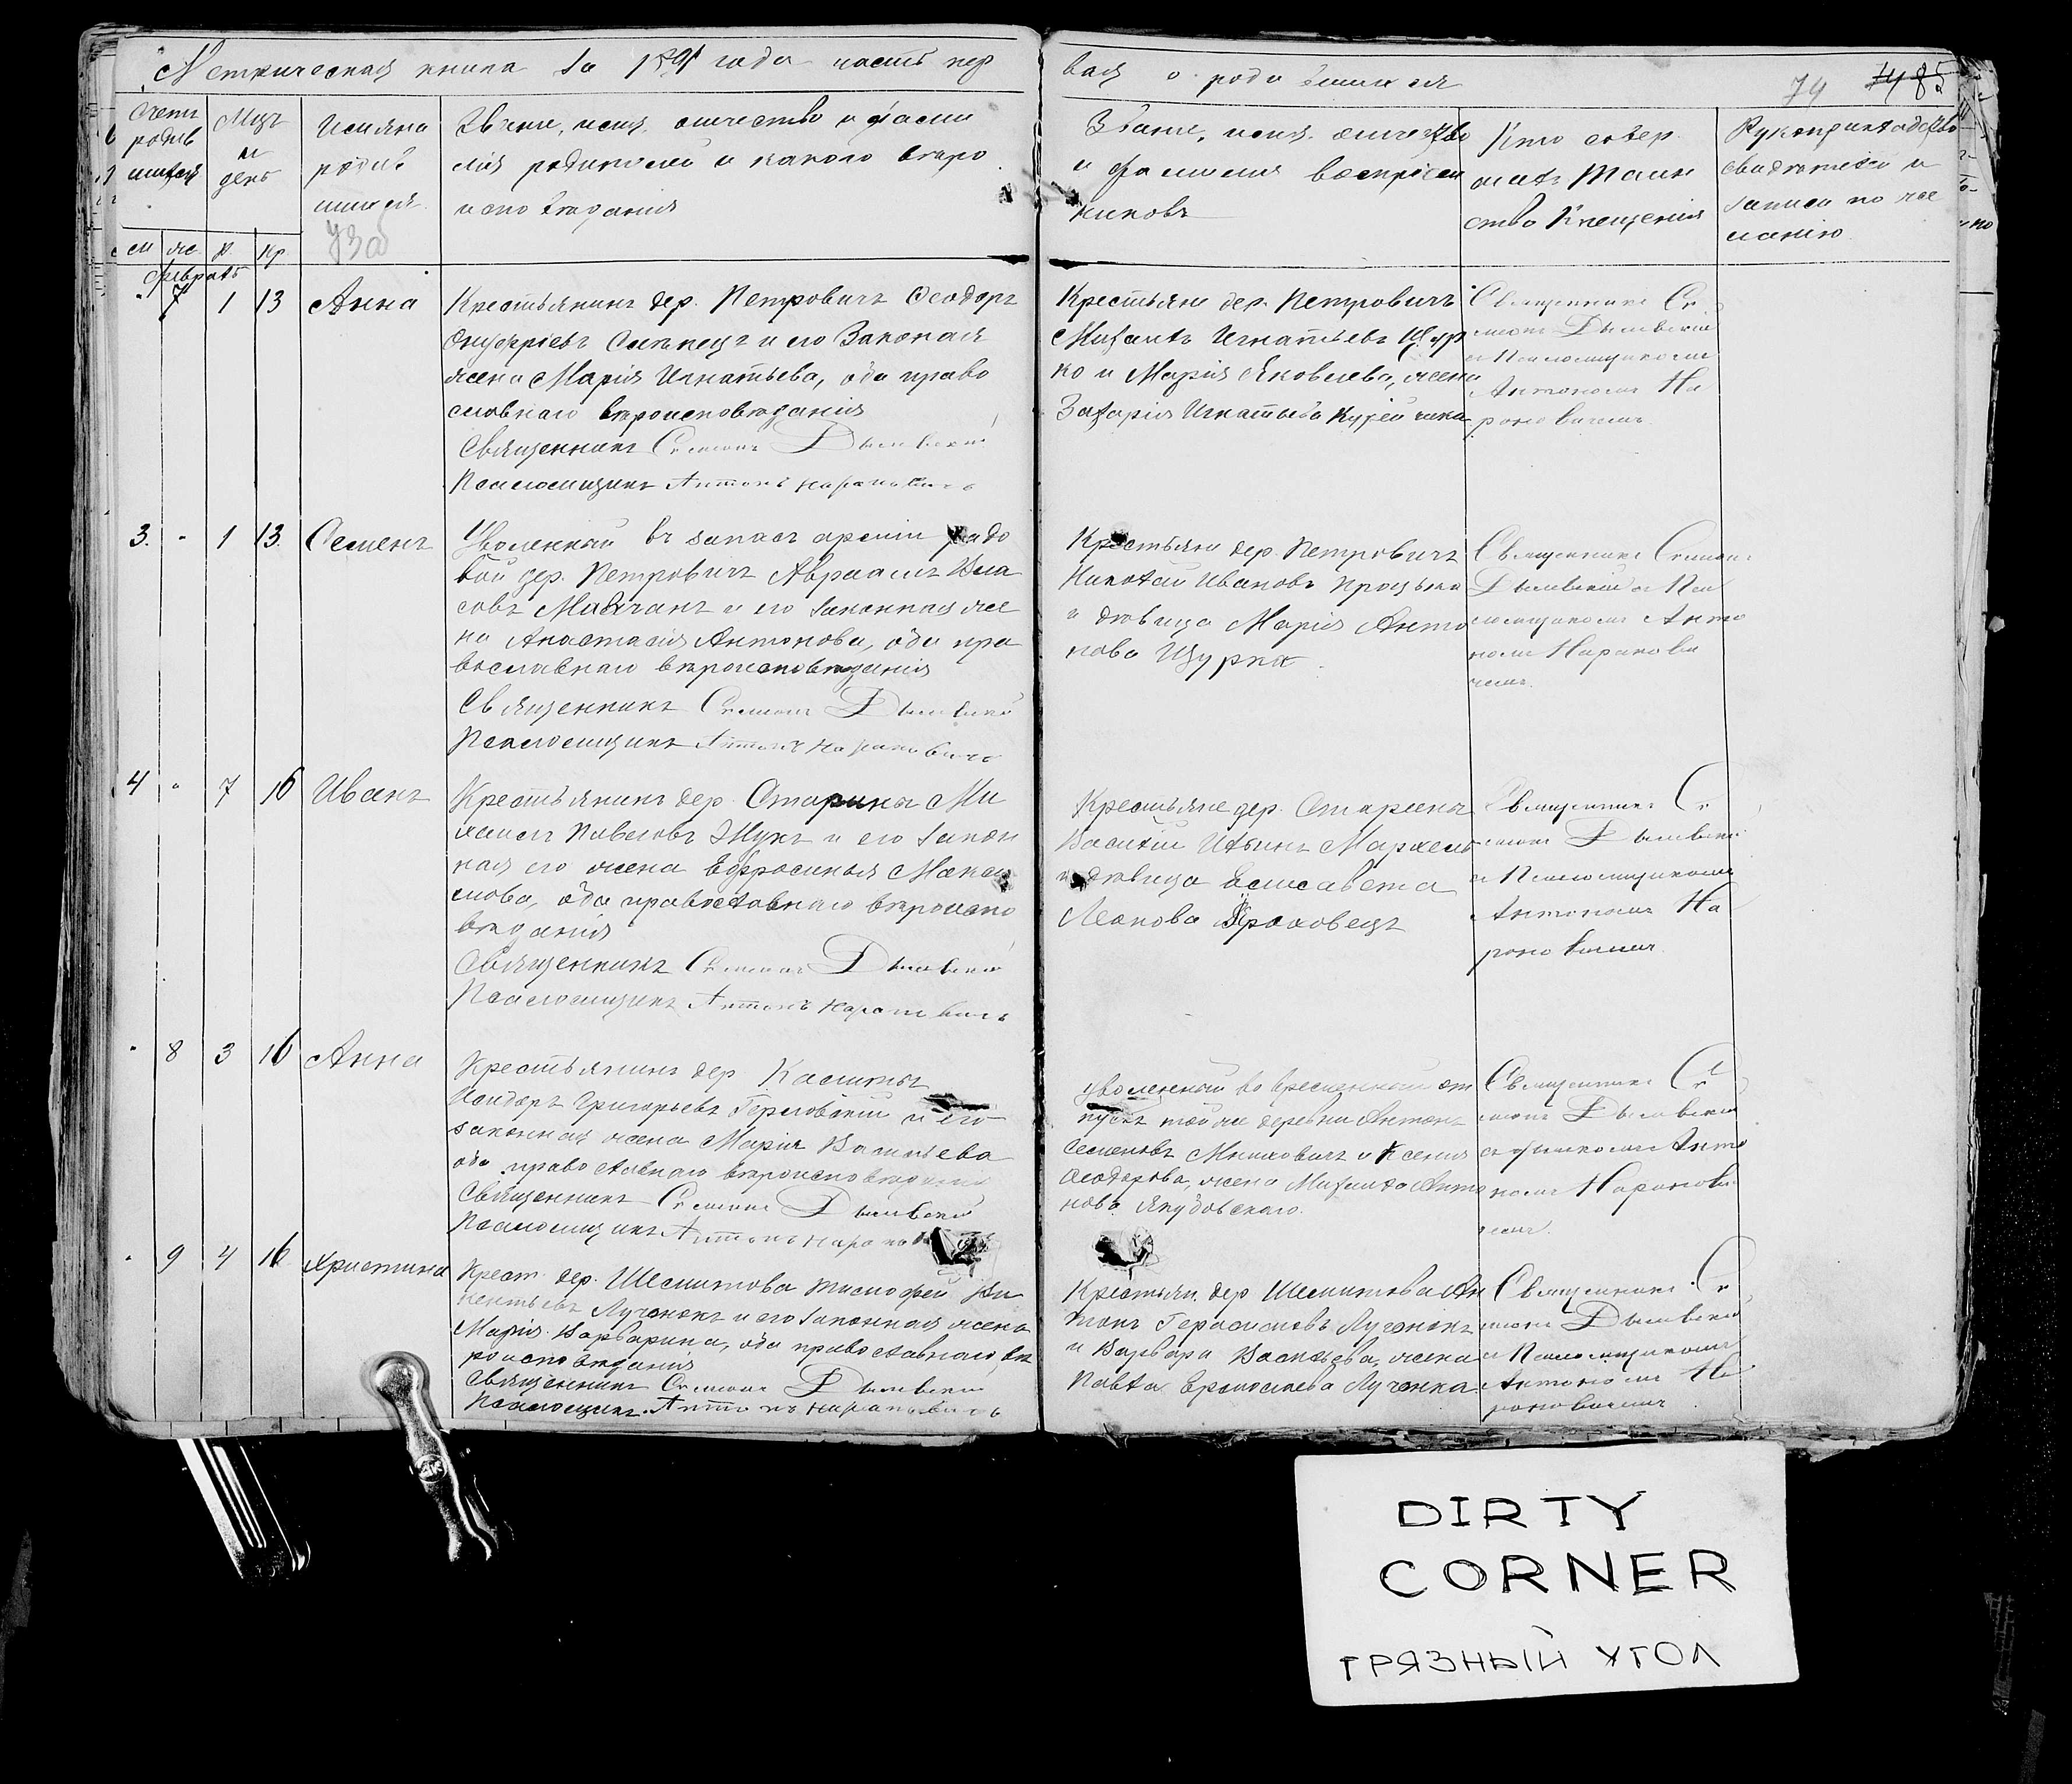 Метрическая книга за 1891 года часть пер
вая о родившихся
74
Счетъ
родив
шихся
Мцъ
и
день
Имена
родив
шихся
Званіе, имя, отчество и фами
лія родителей и какого вѣро
исповѣданія
Званіе, имя, отчество
и фамилія воспріем
никовъ
Кто совер
шалъ таин
ство Крещенія
Рукоприкладство
свидѣтелей и
записи по же
ланію
м ж р кр
Февраль
" 7 1 13 Анна
Крестьянинъ дер. Петровичъ Ѳеодоръ
Онуфріевъ и его Законная
жена Марія Игнатьева, оба право
славнаго вѣроисповѣданія
Священникъ Симеонъ
Псаломщикъ Антонъ Нарановичъ
Крестьяне дер. Петровичъ
Михаилъ Игнатьевъ Щур
ко и Марія Яковлева, жена
Захарія Игнатьева
Священникъ Си
меонъ
съ Псаломщикомъ
Антономъ На
рановичемъ
3. " 1 13. Семенъ
Уволенный въ запасъ арміи рядо
вой дер. Петровичъ Авраамъ Вла
совъ и его законная же
на Анастасія Антонова, оба пра
вославнаго вѣроисповѣданія
Священникъ Симеонъ
Псаломщикъ Антонъ Нарановичъ
Крестьяне дер. Петровичъ
Николай Ивановъ Процько
и дѣвица Марія Анто
нова Щурко
Священникъ Симеонъ
съ Пса
ломщикомъ Анто
номъ Наранови
чемъ.
4 " 7 16 Иванъ
Крестьянинъ дер. Старины Ми
хаилъ Павловъ Жукъ и его закон
ная его жена Ефросинья Макси
мова, оба православнаго вѣроиспо
вѣданія
Священникъ Симеонъ
Псаломщикъ Антонъ Нарановичъ
Крестьяне дер. Старины
Василій Ильинъ
и дѣвица Елисавета
Леонова
Священникъ Си
меонъ
съ Псаломщикомъ
Антономъ На
рановичемъ
" 8 3 16 Анна
Крестьянинъ дер.
Исидоръ Григорьевъ и его
законная жена Марія Васильева
оба православнаго вѣроисповѣданія
Священникъ Симеонъ
Псаломщикъ Антонъ Нарановичъ
Уволенный во временный от
пускъ той же деревни Антонъ
Семеновъ и Ксенія
Ѳеодорова, жена Михаила Анто
нова Якубовскаго.
Священникъ Си
меонъ
съ Анто
номъ Наранови
чемъ.
" 9 4 16 Христина
Крест. дер. Шемитова Тимофей Ви
кентьевъ Лученокъ и его законная жена
Марія оба православнаго вѣ
роисповѣданія
Священникъ Симеонъ
Псаломщикъ Антонъ Нарановичъ
Крестьян. дер Шемитова Ан
тонъ Герасимовъ Лученокъ
и Варвара Васильева, жена
Павла Ермолаева Лученка
Священникъ Си
меонъ
съ Псаломщикомъ
Антономъ На
рановичемъ
DIRTY
CORNER
ГРЯЗНЫЙ УГОЛ